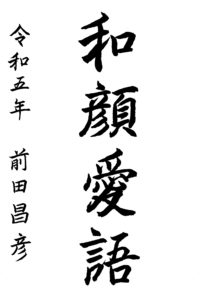 和顔愛語
令和五年 前田昌彦